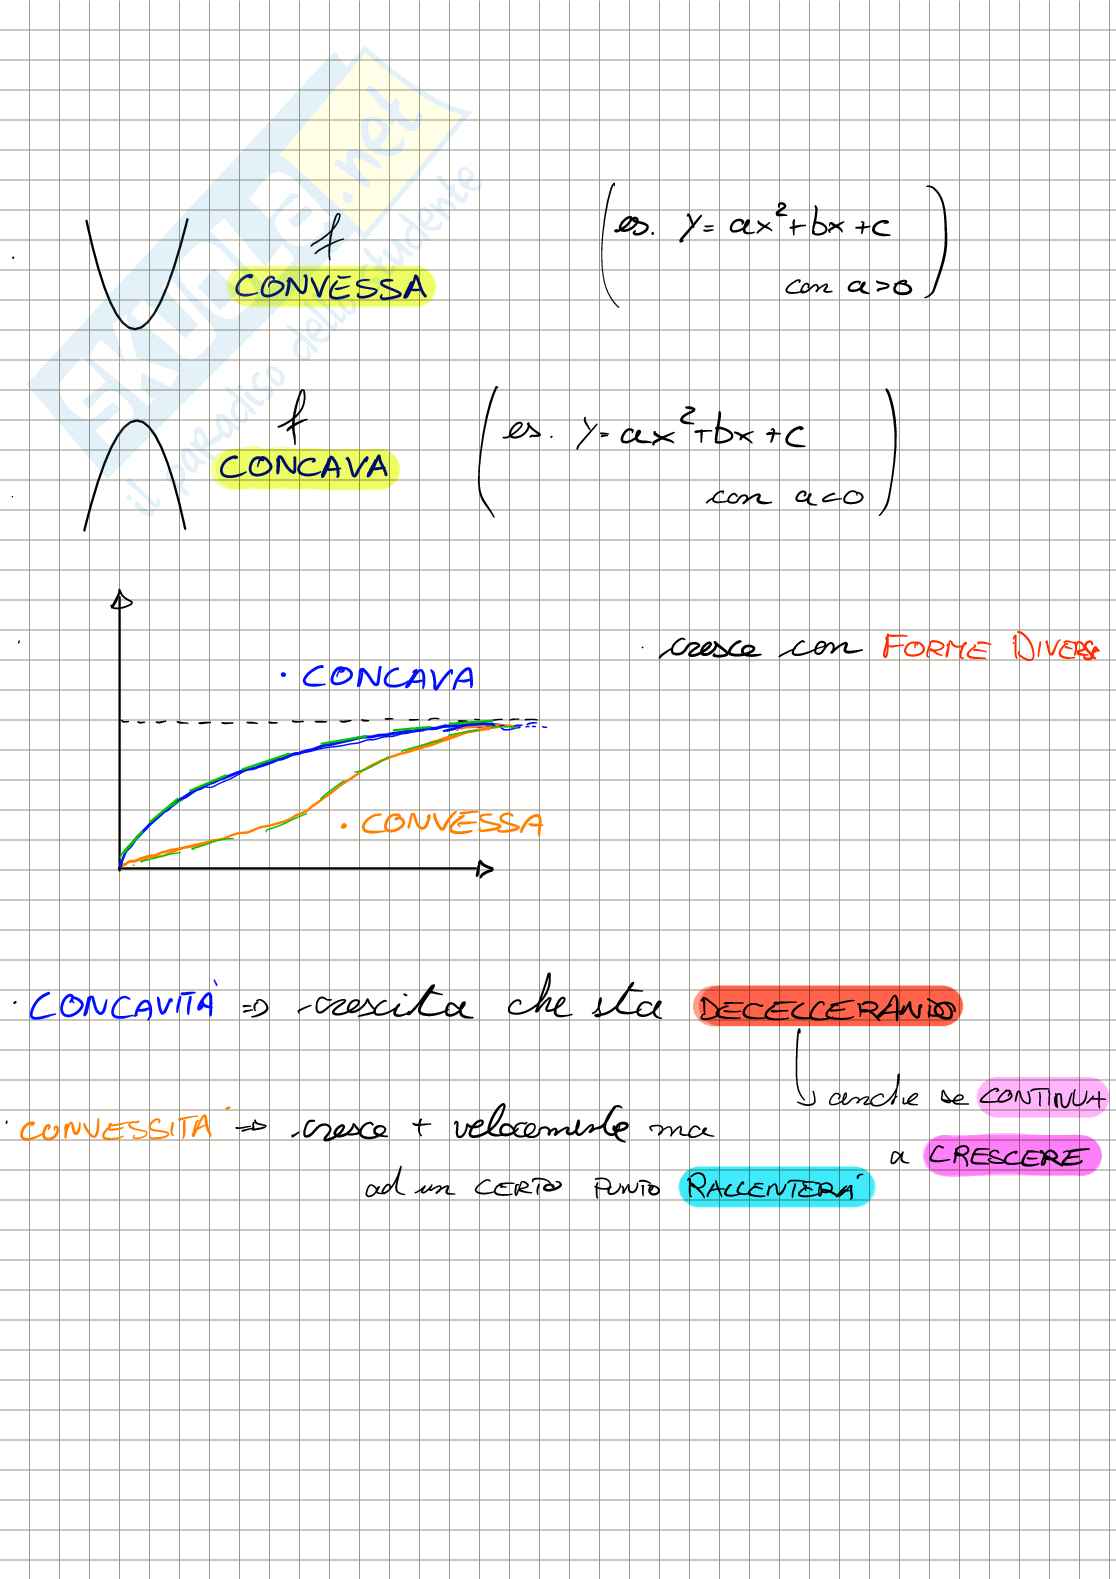 SKUOLA.net
il paradiso dello studente
f
CONVESSA
(es. y = ax²+bx+c
con a>0)
f
CONCAVA
(es. y = ax²+bx+c
con a<0)
· cresce con FORME DIVERSE
· CONCAVA
· CONVESSA
· CONCAVITÀ => crescita che sta DECELLERANDO
↳ anche se CONTINUA
a CRESCERE
· CONVESSITÀ => cresce + velocemente ma
ad un CERTO PUNTO RALLENTERÁ